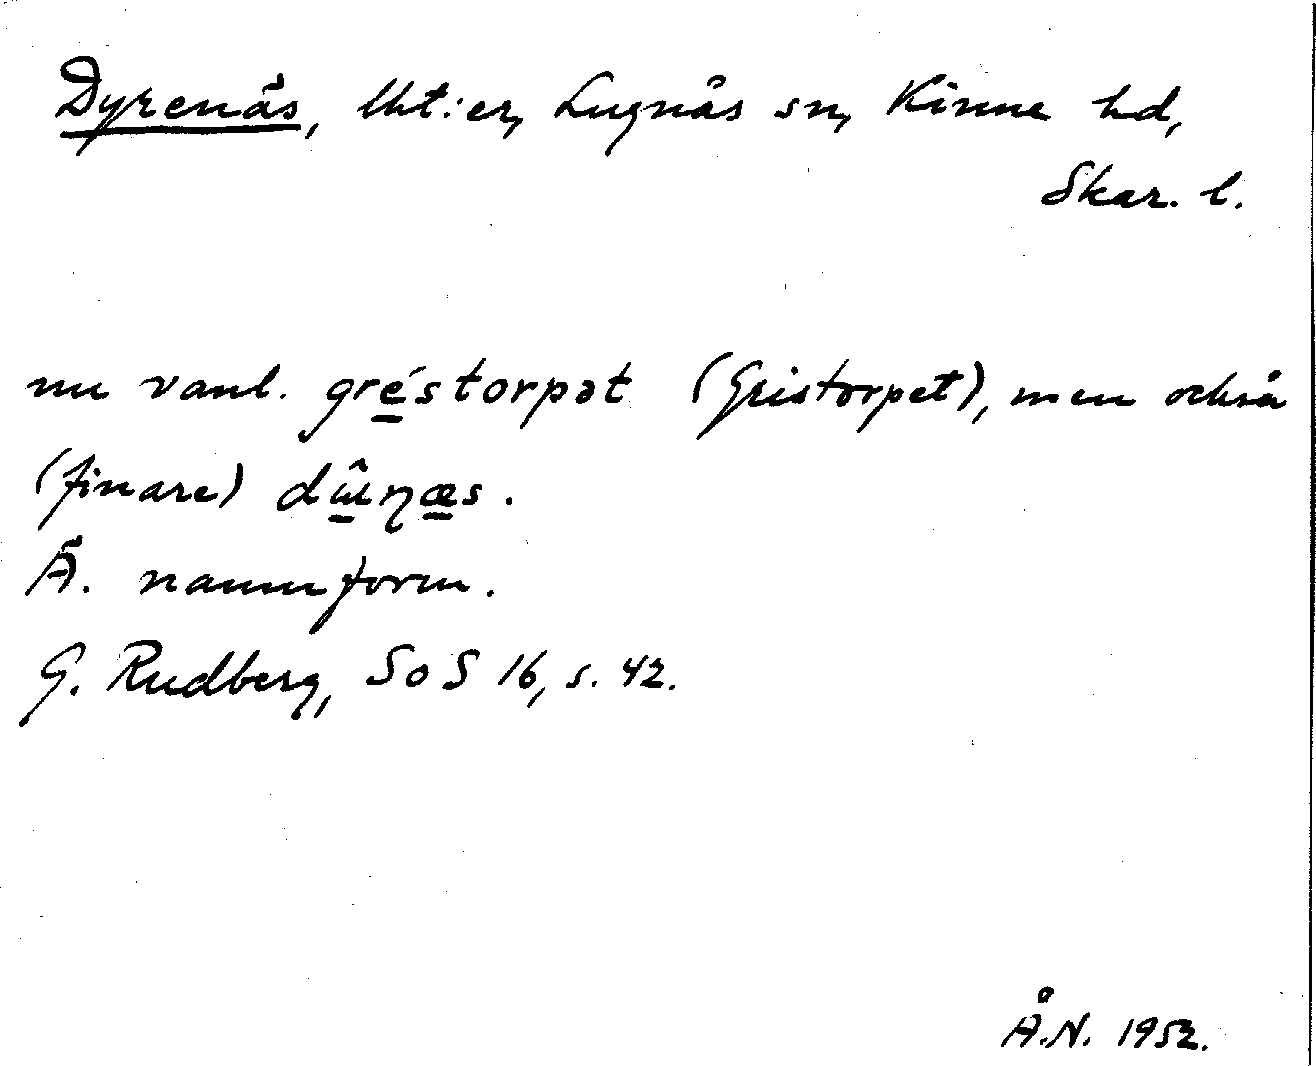 Dyrenäs, lht:er, Lugnås sn, Kinne hd,
Skar. l.
nu vanl. gréstorpət (Gristorpet), men också
(finare) dɯ̂ɳæs.
Ä. namnform.
G. Rudberg, SoS 16, s. 42.
Å.N. 1952.